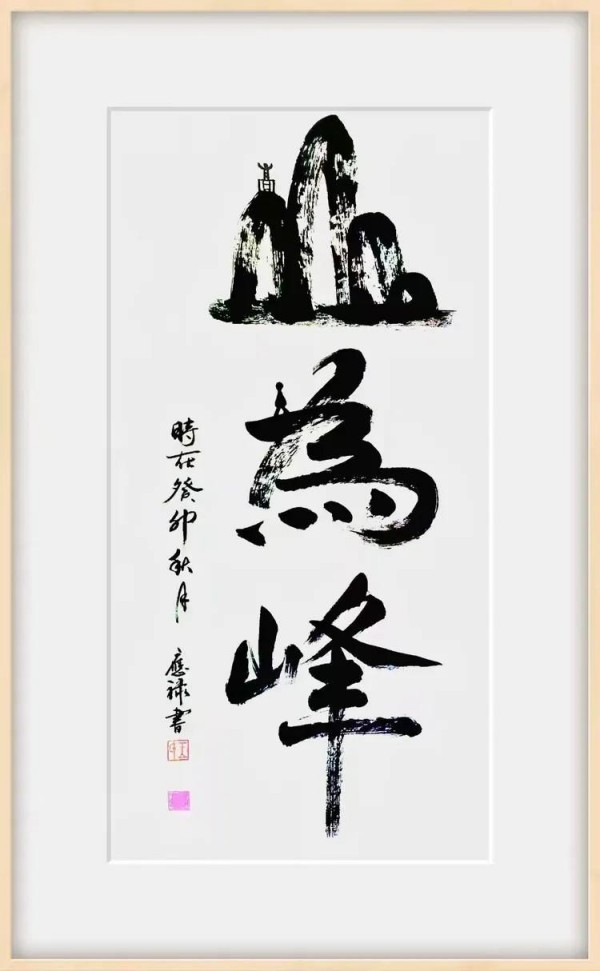 山為峰
時在癸卯秋月 應祿書